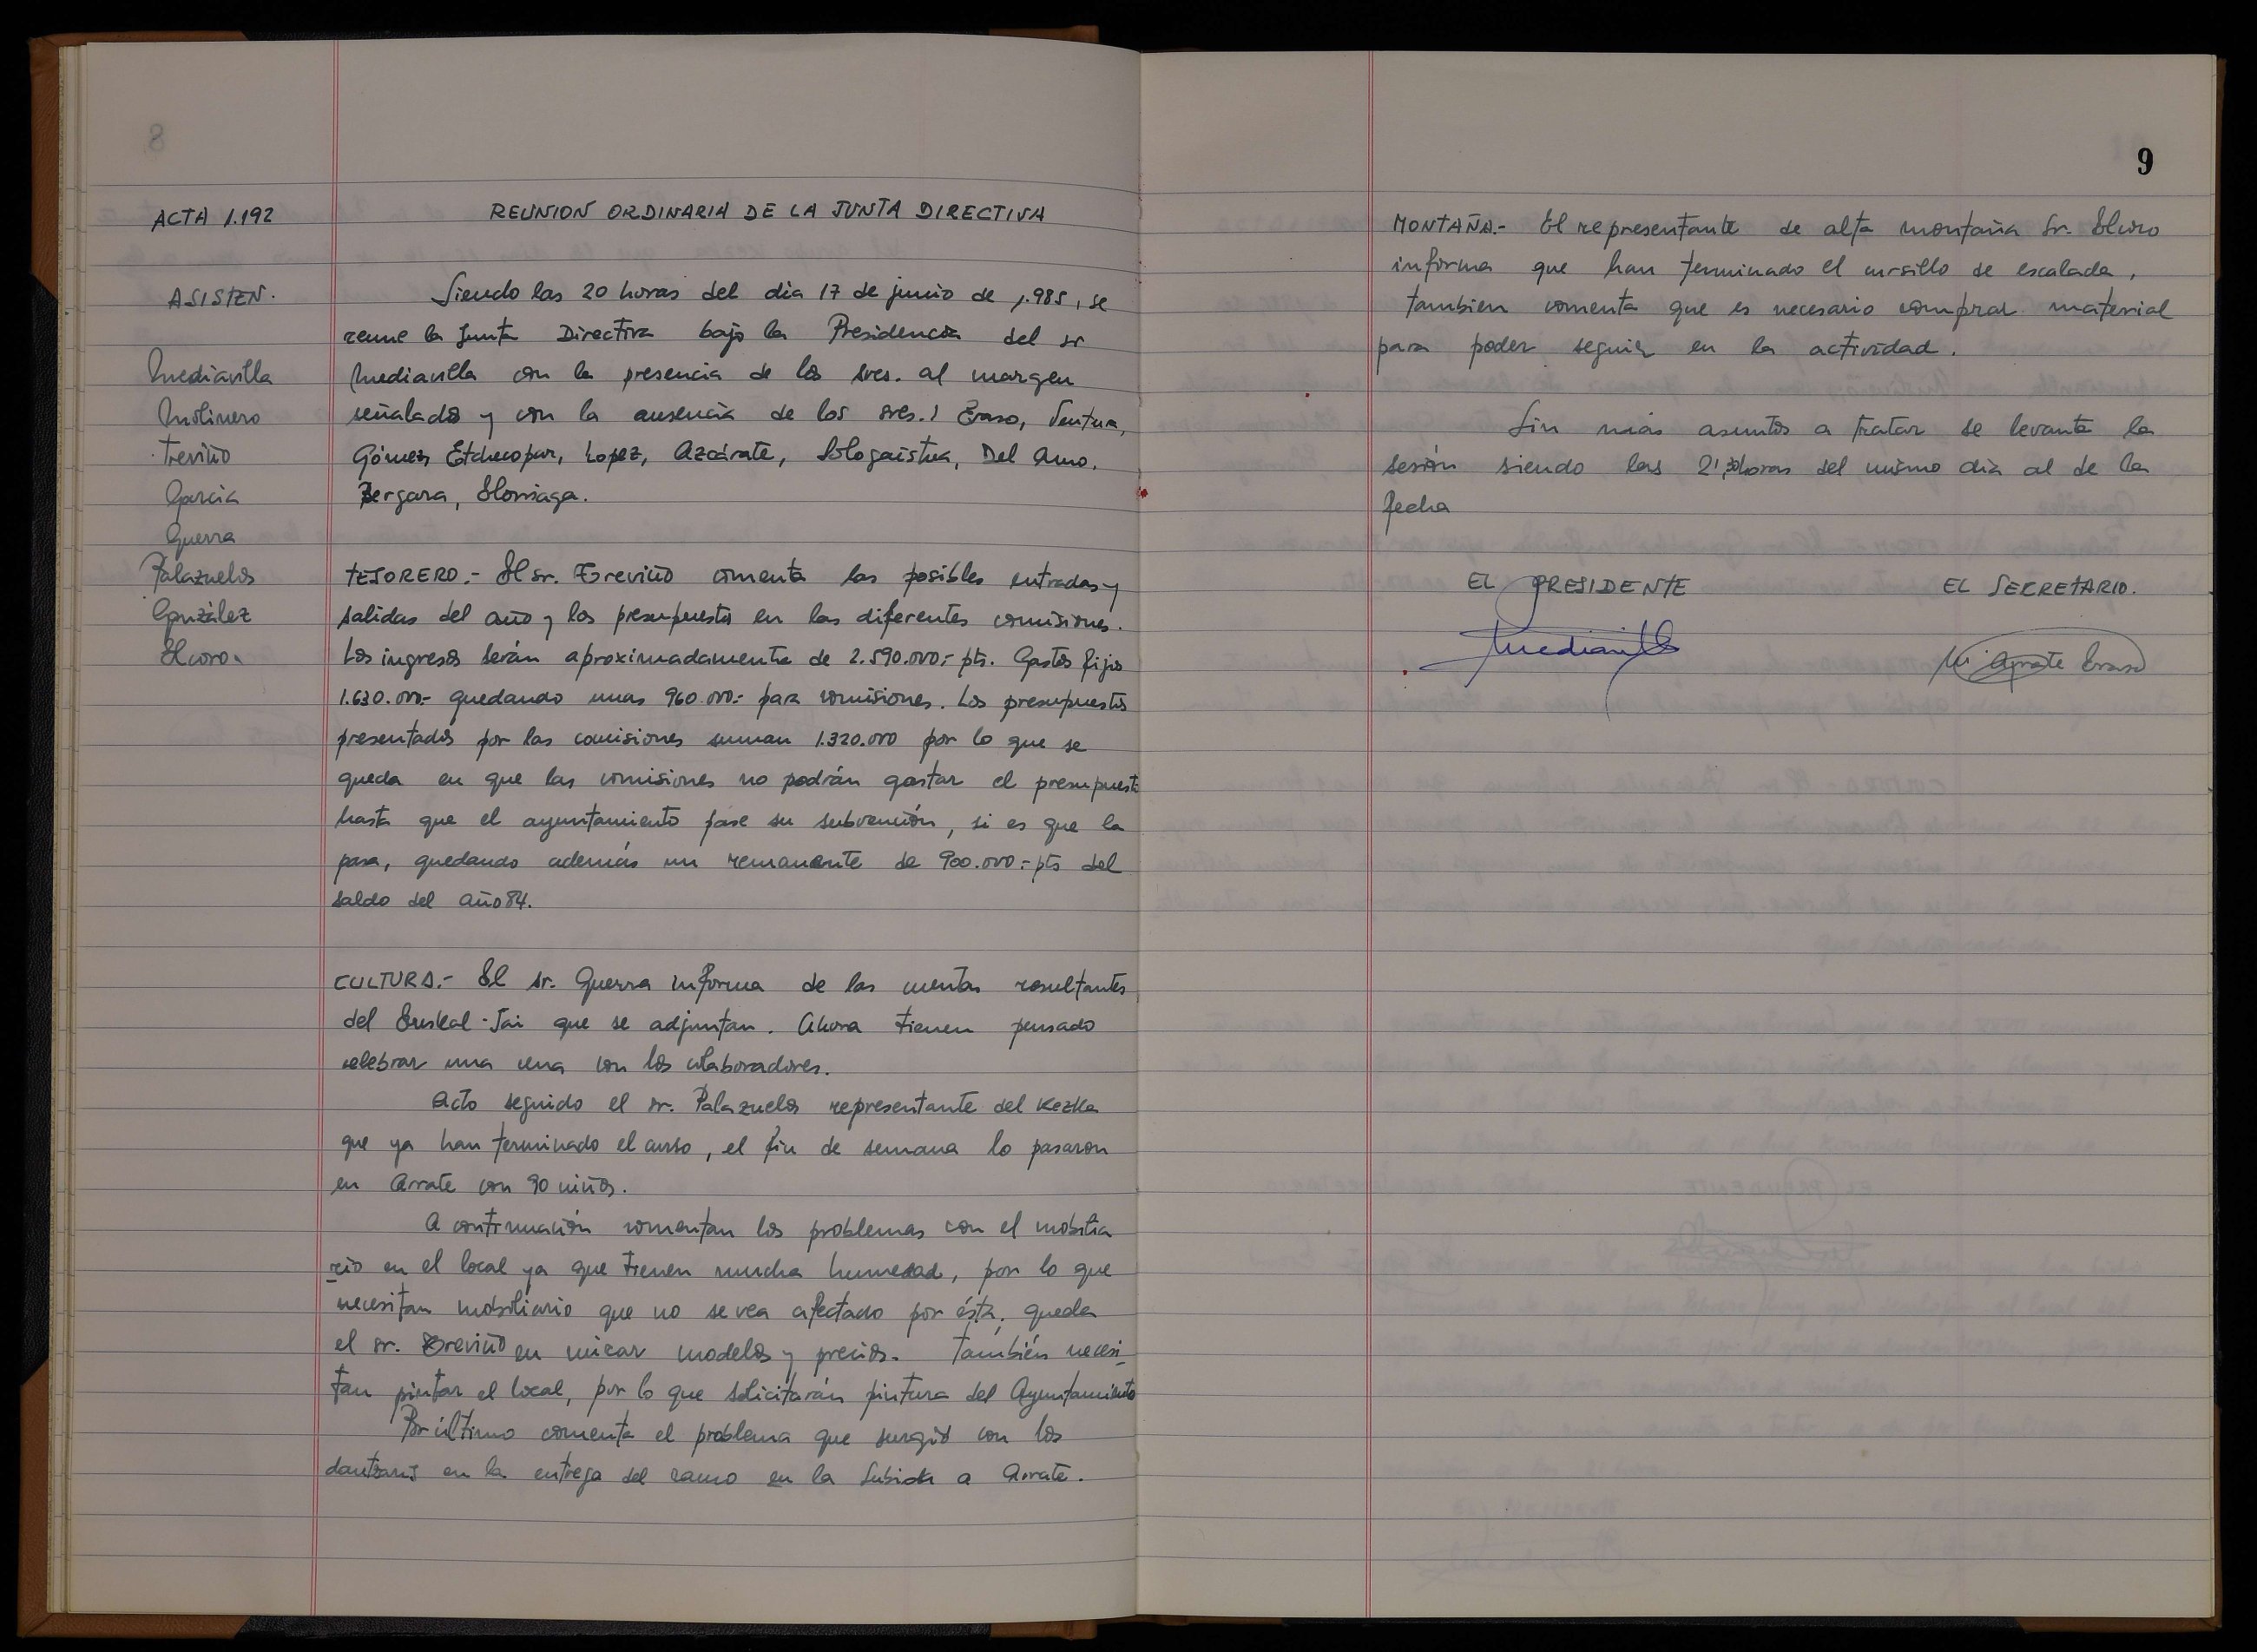 ACTA 1.192
REUNION ORDINARIA DE LA JUNTA DIRECTIVA
ASISTEN.
Mediavilla
Molinero
Treviño
García
Guerra
Palazuelos
González
Siendo las 20 horas del dia 17 de junio de 1.985, se
reune la Junta Directiva bajo la Presidencia del sr
Mediavilla con la presencia de los sres. al margen
señalados y con la ausencia de los sres.: Eraso, Ventura,
Gómez, Etchecopar, Lopez, Azcárate, Ologaistua, Del Amo.
Bergara, Elorriaga.
TESORERO.- El sr. Treviño comenta las posibles entradas y
salidas del año y los presupuestos en las diferentes comisiones.
Los ingresos serán aproximadamente de 2.590.000.- pts. Gastos fijos
1.630.000.- quedando unas 960.000.- para comisiones. Los presupuestos
presentados por las comisiones suman 1.320.000 por lo que se
queda en que las comisiones no podrán gastar el presupuesto
hasta que el ayuntamiento pase su subvención, si es que la
pasa, quedando además un remanente de 900.000.- pts del
saldo del año 84.
CULTURA.- El sr. Guerra informa de las cuentas resultantes
del Euskal-Jai que se adjuntan. Ahora tienen pensado
celebrar una cena con los colaboradores.
Acto seguido el sr. Palazuelos representante del Kezka
que ya han terminado el curso, el fin de semana lo pasaron
en Arrate con 90 niños.
A continuación comentan los problemas con el mobilia
rio en el local ya que tienen mucha humedad, por lo que
necesitan mobiliario que no se vea afectado por ésta, queda
el sr. Treviño en mirar modelos y precios. También necesi-
tan pintar el local, por lo que solicitarán pintura del Ayuntamiento
Por último comenta el problema que surgió con los
dantzaris en la entrega del ramo en la Subida a Arrate.
9
MONTAÑA.- El representante de alta montaña Sr.
informa que han terminado el cursillo de escalada,
tambien comenta que es necesario comprar material
para poder seguir en la actividad.
Sin más asuntos a tratar se levanta la
sesión siendo las 21,30 horas del mismo dia al de la
fecha
EL PRESIDENTE
EL SECRETARIO.
Mediavilla
Mi Arrate Eraso
8